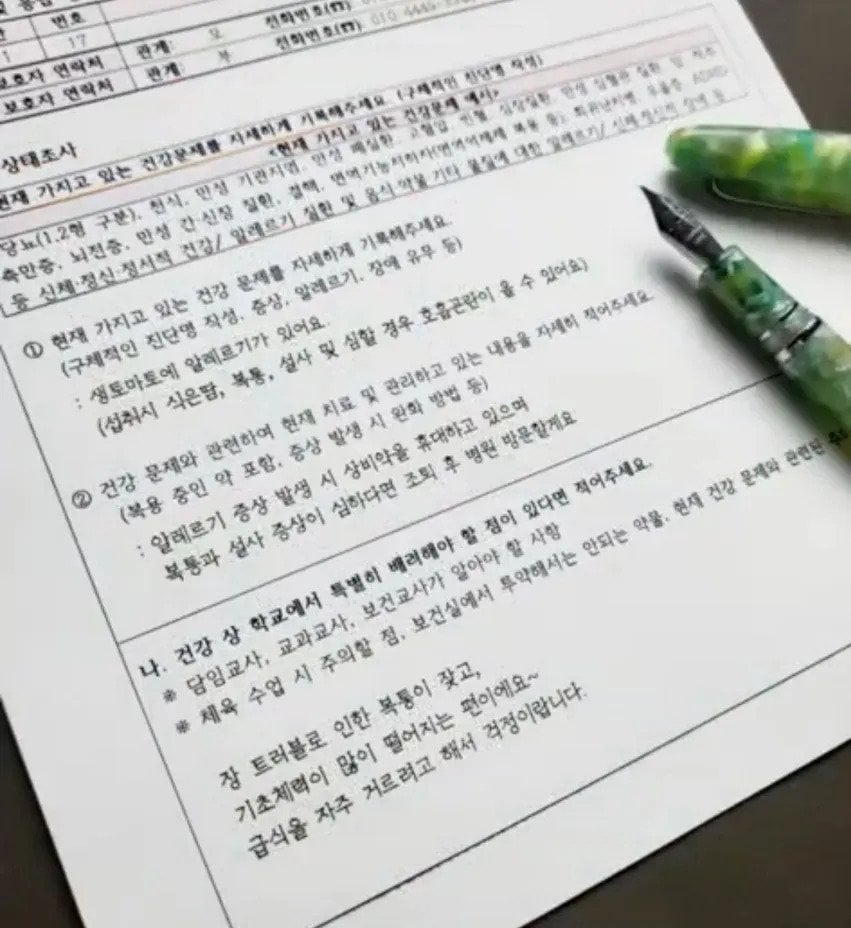 번호
1 17
보호자 연락처 관계: 모 전화번호(☎)
보호자 연락처 관계: 부 전화번호(☎) 010
상태조사
현재 가지고 있는 건강문제를 자세하게 기록해주세요 (구체적인 진단명 작성)
<현재 가지고 있는 건강문제 예시>
당뇨(1,2형 구분), 천식, 만성 기관지염, 만성 폐질환, 고혈압, 빈혈, 심장질환, 만성 심혈관 질환, 암
측만증, 뇌전증, 만성 간·신장 질환, 결핵, 면역기능저하자(면역억제제 복용 등), 희귀난치병, 우울증, ADHD
등 신체·정신·정서적 건강/ 알레르기 질환 및 음식 약물 기타 물질에 대한 알레르기/ 신체·정신적 장애 등
① 현재 가지고 있는 건강 문제를 자세하게 기록해주세요.
(구체적인 진단명 작성, 증상, 알레르기, 장애 유무 등)
: 생토마토에 알레르기가 있어요.
(섭취시 식은땀, 복통, 설사 및 심할 경우 호흡곤란이 올 수 있어요)
② 건강 문제와 관련하여 현재 치료 및 관리하고 있는 내용을 자세히 적어주세요.
(복용 중인 약 포함, 증상 발생 시 완화 방법 등)
: 알레르기 증상 발생 시 상비약을 휴대하고 있으며
복통과 설사 증상이 심하다면 조퇴 후 병원 방문할게요
나. 건강 상 학교에서 특별히 배려해야 할 점이 있다면 적어주세요.
※ 담임교사, 교과교사, 보건교사가 알아야 할 사항
※ 체육 수업 시 주의할 점, 보건실에서 투약해서는 안되는 약물, 현재 건강 문제와 관련된
장 트러블로 인한 복통이 잦고,
기초체력이 많이 떨어지는 편이에요~
급식을 자주 거르려고 해서 걱정이랍니다.